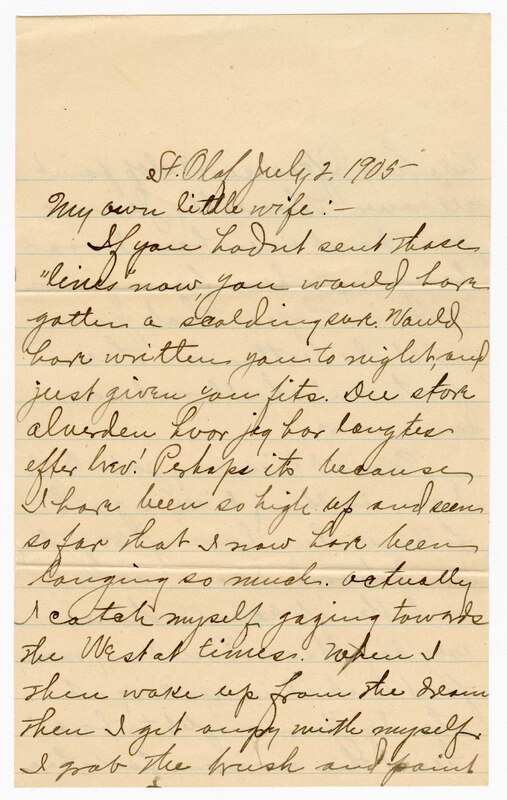 St. Olaf July 2, 1905
My own little wife:-
If you hadn't sent those
"lines" now, you would have
gotten a scolding sure. Would
have written you to night, and
just given you fits. Du store
alverden hvor jeg har længtes
efter brev! Perhaps its because
I have been so high up and seen
so far that I now have been
longing so much. actually
I catch myself gazing towards
the West at times. When I
then wake up from the dream
then I get angry with myself.
I grab the brush and paint